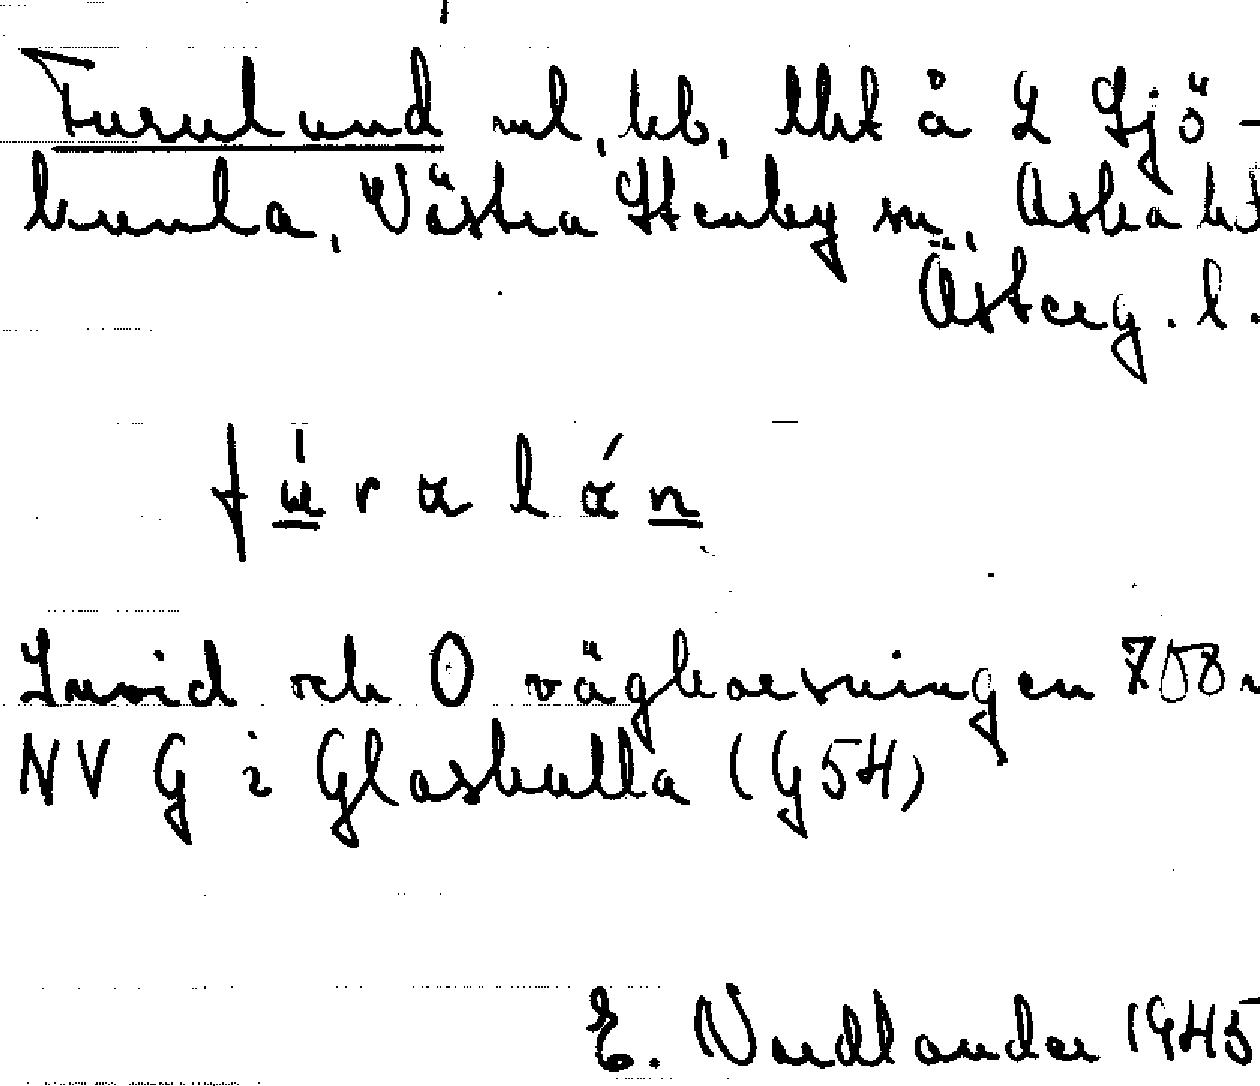 Furulund ml, kb, lht å L Sjö-
kumla, Västra Stenby sn, Aska hd
Österg. l.
fùralán
Invid och O vägkorsningen 700 m
NV G i Glaskulla (G54)
E. Nordlander 1945